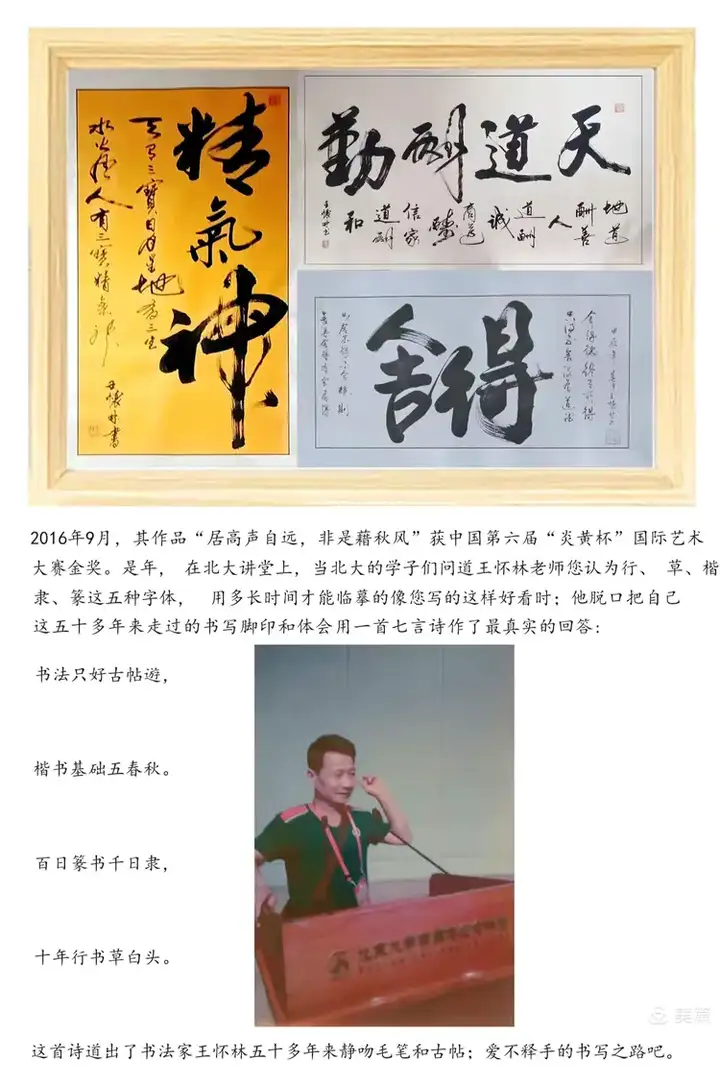 精氣神
天有三寶日月星地有三寶
水火風人有三寶精氣神
王懷林書
天道酬勤
地道酬善
人道酬誠
商道酬信
家道酬和
得
舍
2016年9月，其作品“居高声自远，非是藉秋风”获中国第六届“炎黄杯”国际艺术
大赛金奖。是年， 在北大讲堂上，当北大的学子们问道王怀林老师您认为行、 草、楷
隶、篆这五种字体， 用多长时间才能临摹的像您写的这样好看时；他脱口把自己
这五十多年来走过的书写脚印和体会用一首七言诗作了最真实的回答：
书法只好古帖遊，
楷书基础五春秋。
百日篆书千日隶，
十年行书草白头。
这首诗道出了书法家王怀林五十多年来静吻毛笔和古帖；爱不释手的书写之路吧。
美篇